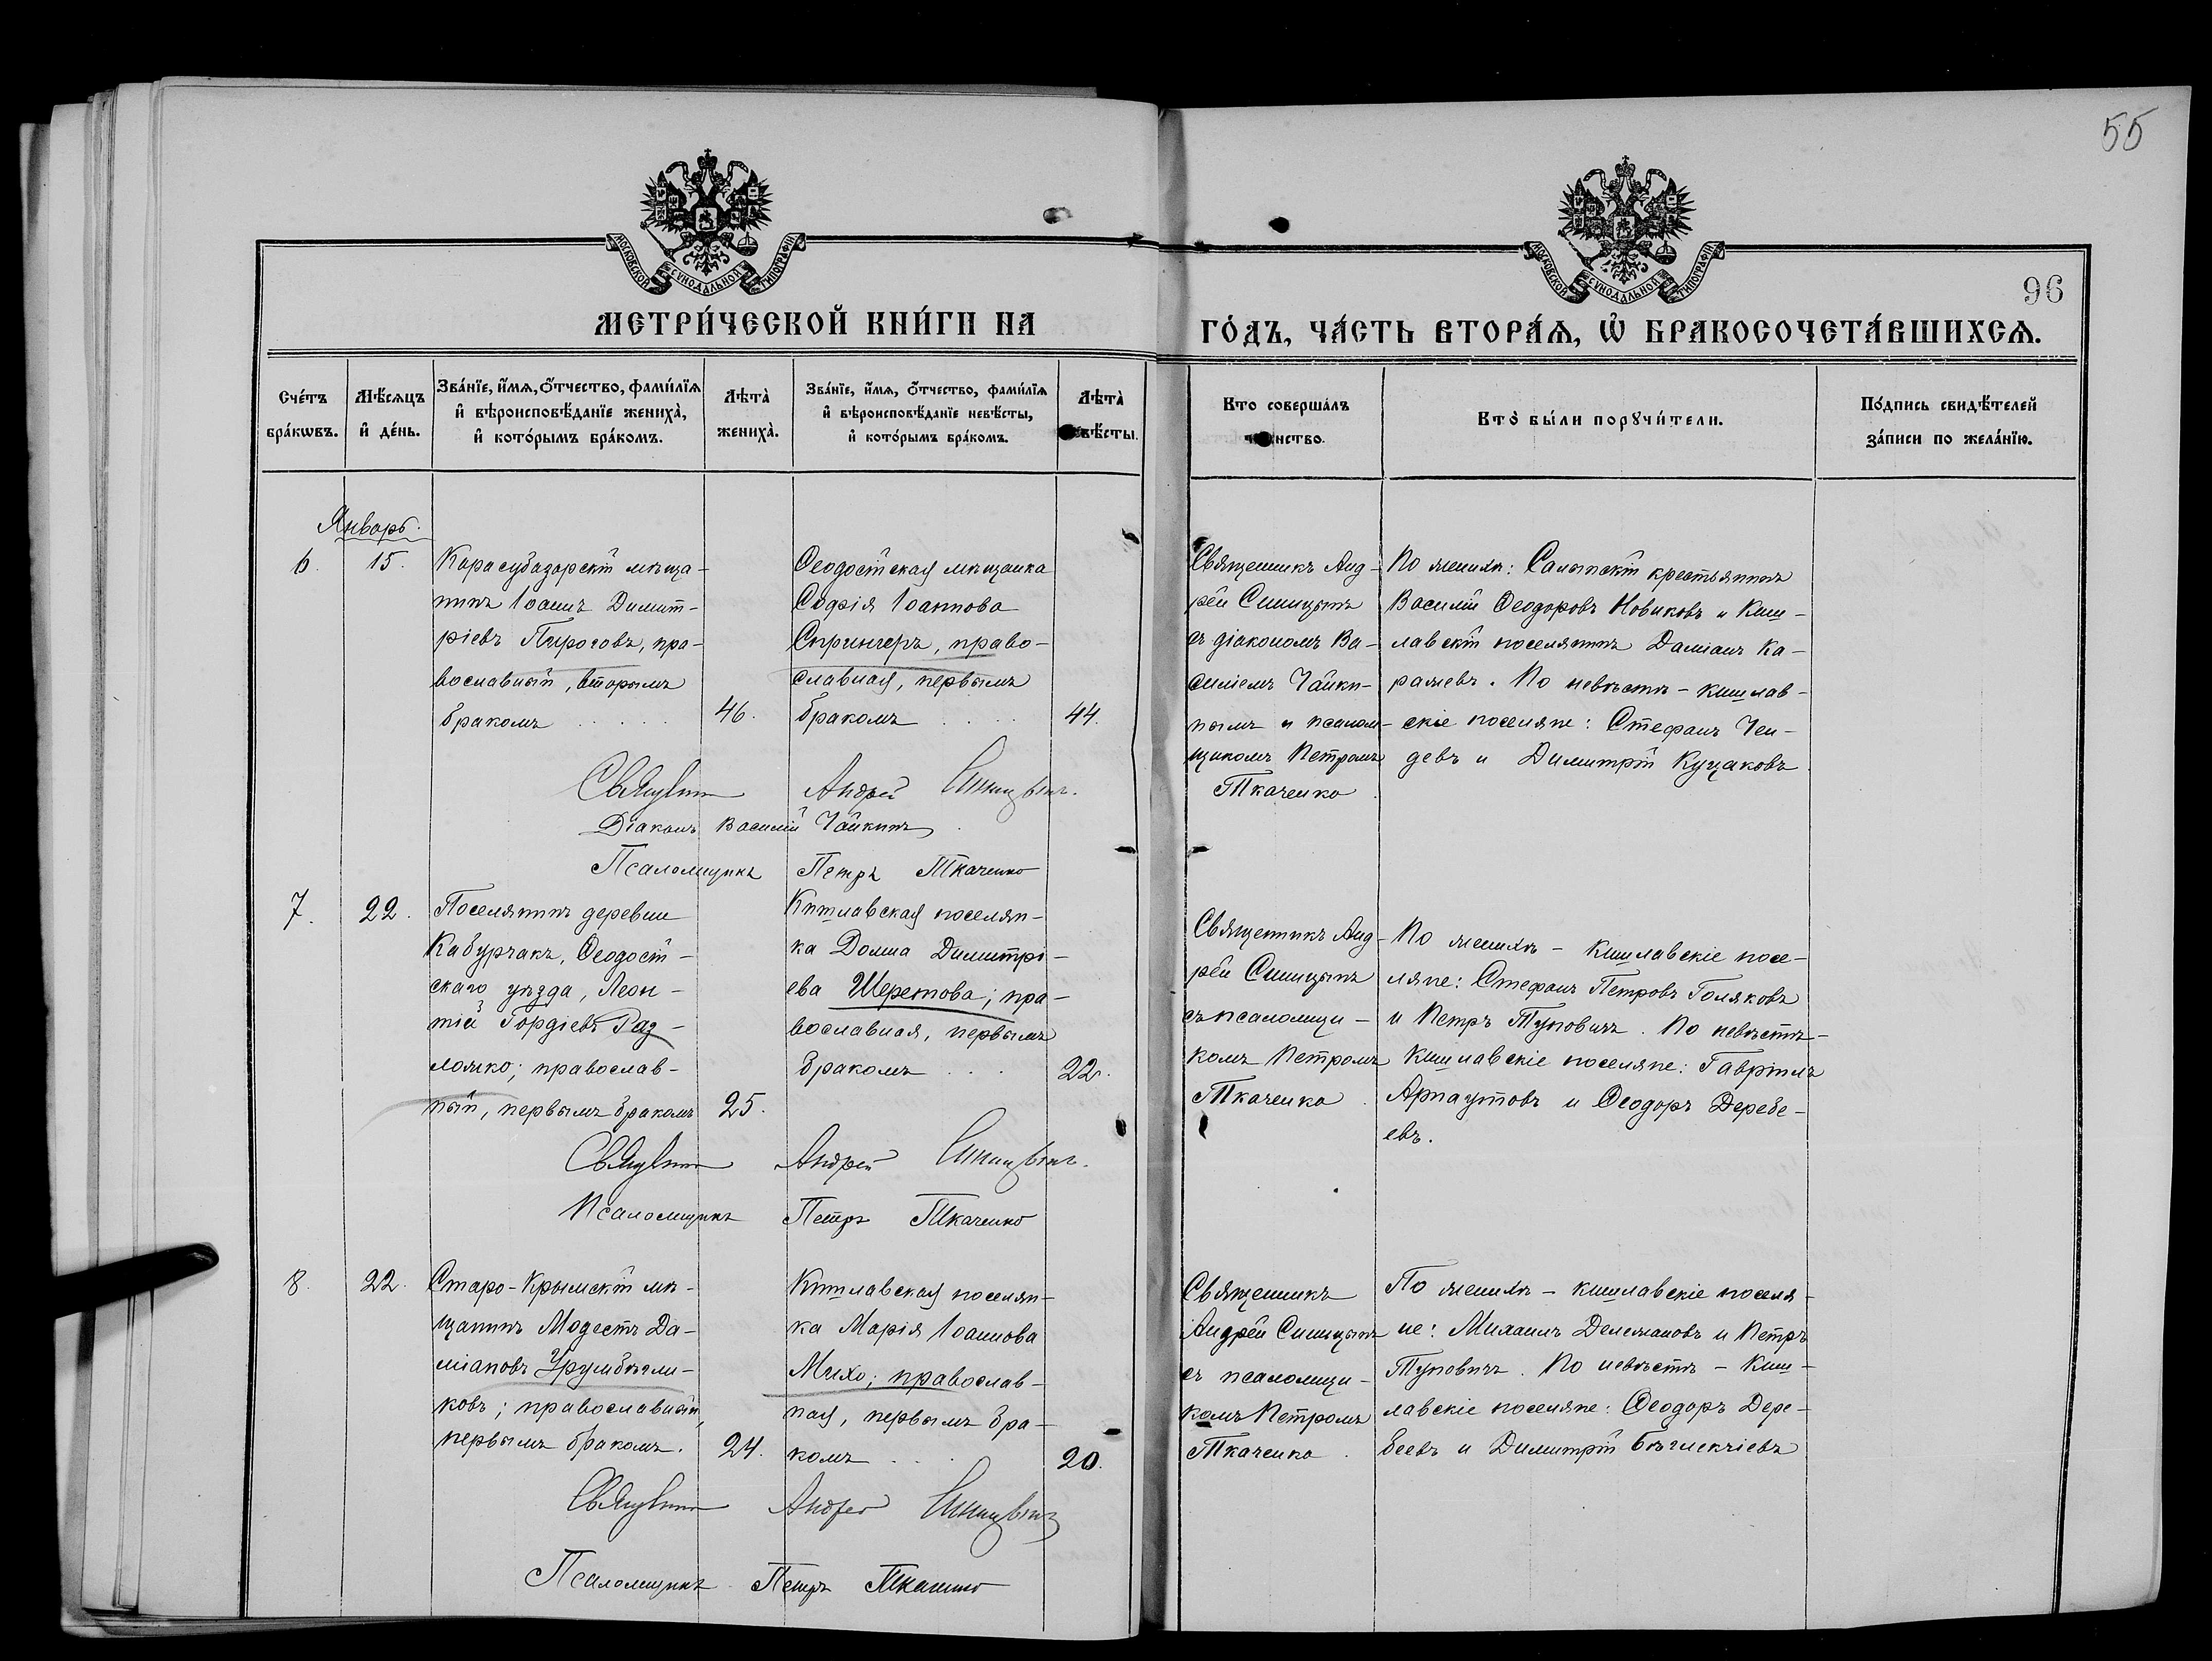 55
МОСКОВСКОЙ СѴНОДАЛЬНОЙ ТИПОГРАФІИ
МОСКОВСКОЙ СѴНОДАЛЬНОЙ ТИПОГРАФІИ
96
МЕТРИ́ЧЕСКОЙ КНИ́ГИ НА
ГО́ДЪ, ЧА́СТЬ ВТОРА́Ѧ, Ѡ҆ БРАКОСОЧЕТА́ВШИХСѦ.
Сче́тъ
бра́кѡвъ.
Мѣ́сѧцъ
и҆ де́нь.
Зва́нїе, и҆́мѧ, ѻ҆́тчество, фами́лїѧ
и҆ вѣроисповѣ́данїе жениха̀,
и҆ кото́рымъ бра́комъ.
Лѣта̀
жениха̀.
Зва́нїе, и҆́мѧ, ѻ҆́тчество, фами́лїѧ
и҆ вѣроисповѣ́данїе невѣ́сты,
и҆ кото́рымъ бра́комъ.
Лѣта̀
невѣ́сты.
Кто соверша́лъ
таинство.
Кто̀ бы́ли порꙋчи́тели.
По́дпись свидѣ́телей
за́писи по жела́нїю.
Январь.
6.
15.
Карасубазарскій мѣща-
нинъ Іоаннъ Димит-
ріевъ Пироговъ, пра-
вославный, вторымъ
бракомъ . . . . .
46.
Ѳеодосійская мѣщанка
Софія Іоаннова
Спрингеръ, право-
славная, первымъ
бракомъ . . . .
44.
Священникъ Анд-
рей Синицынъ
съ діакономъ Ва-
силіемъ Чайки-
нымъ и псалом-
щикомъ Петромъ
Ткаченко.
По женихѣ: Салынскій крестьянинъ
Василій Ѳеодоровъ Новиковъ и Киш-
лавскій поселянинъ Даміанъ Ка-
ражевъ. По невѣстѣ - кишлав-
скіе поселяне: Стефанъ Чен-
девъ и Димитрій Куцаковъ
Священникъ Андрей Синицынъ.
Діаконъ Василій Чайкинъ.
Псаломщикъ Петръ Ткаченко
7.
22.
Поселянинъ деревни
Кабурчакъ, Ѳеодосій-
скаго уѣзда, Леон-
тій Гордіевъ Раз-
ложко; православ-
ный, первымъ бракомъ
25.
Кишлавская поселян-
ка Домна Димитрі-
ева Шеретова; пра-
вославная, первымъ
бракомъ . . .
22.
Священникъ Анд-
рей Синицынъ
съ псаломщи-
комъ Петромъ
Ткаченко.
По женихѣ - кишлавскіе посе-
ляне: Стефанъ Петровъ Голяковъ
и Петръ Туповичъ. По невѣстѣ-
Кишлавскіе поселяне: Гавріилъ
Арнаутовъ и Ѳеодоръ Деребе-
евъ.
Священникъ Андрей Синицынъ.
Псаломщикъ Петръ Ткаченко
8.
22.
Старо-Крымскій мѣ-
щанинъ Модестъ Да-
міановъ Урумбѣгли-
ковъ; православный,
первымъ бракомъ.
24.
Кишлавская поселян-
ка Марія Іоаннова
Михо; православ-
ная, первымъ бра-
комъ . . .
20.
Священникъ
Андрей Синицынъ
съ псаломщи-
комъ Петромъ
Ткаченко.
По женихѣ - кишлавскіе поселя-
не: Михаилъ Делемановъ и Петръ
Туповичъ. По невѣстѣ - Киш-
лавскіе поселяне: Ѳеодоръ Дере-
беевъ и Димитрій Бѣглекчіевъ
Священникъ Андрей Синицынъ
Псаломщикъ Петръ Ткаченко